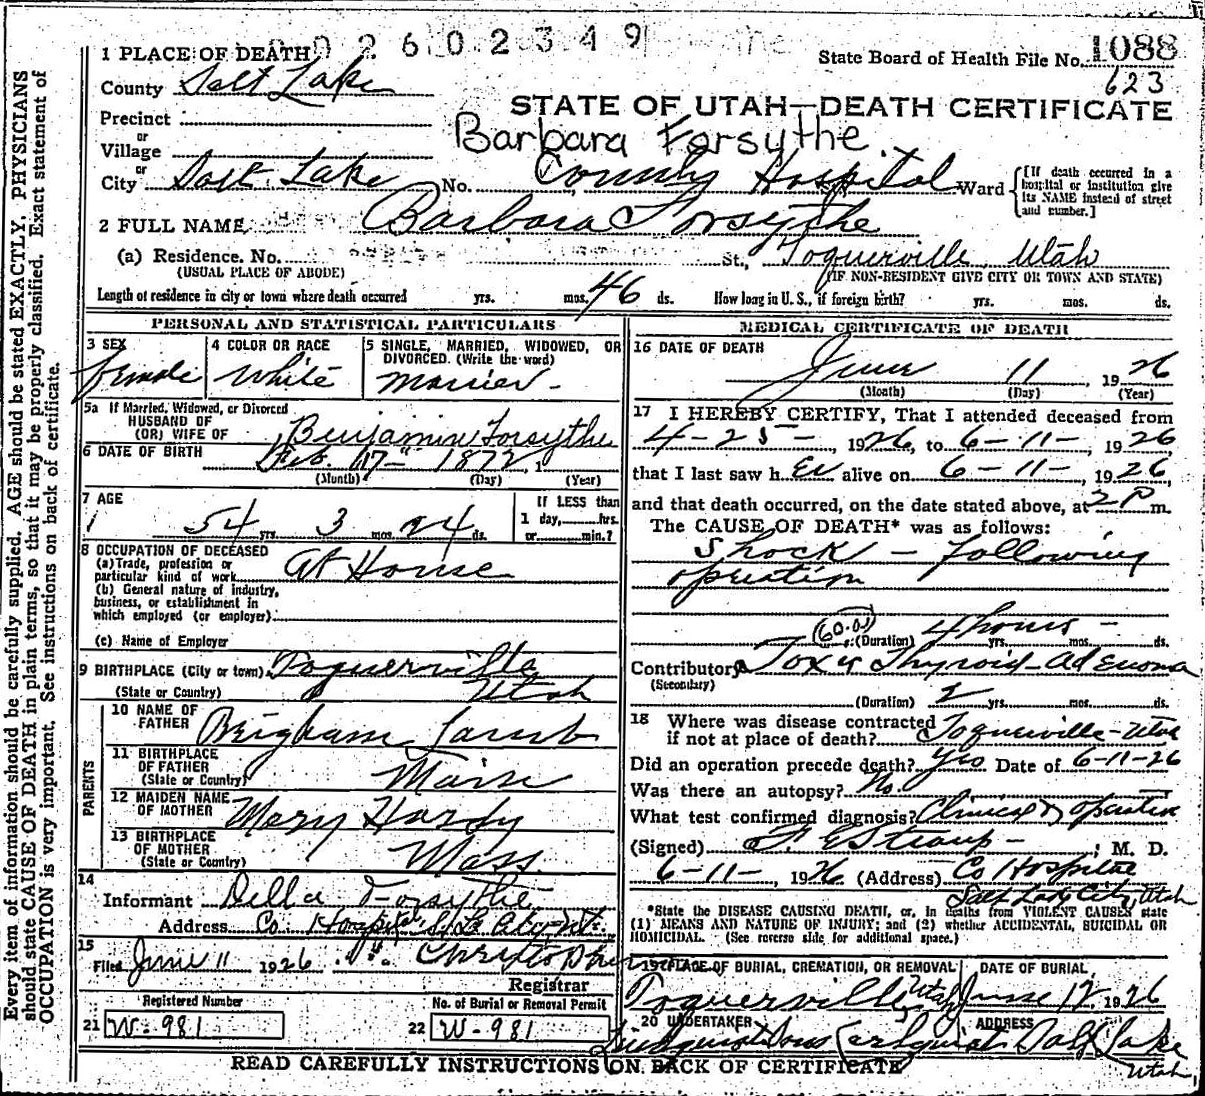 1 PLACE OF DEATH 0 0 2 6 0 2 3 4 9
State Board of Health File No. 1088
623
County Salt Lake
STATE OF UTAH—DEATH CERTIFICATE
Precinct
Barbara Forsythe
or
Village
or
City Salt Lake No. County Hospital Ward
[If death occurred in a hospital or institution give its NAME instead of street and number.]
2 FULL NAME Barbara Forsythe
(a) Residence. No. St., Toquerville, Utah
(USUAL PLACE OF ABODE) (IF NON-RESIDENT GIVE CITY OR TOWN AND STATE)
Length of residence in city or town where death occurred yrs. mos. 46 ds. How long in U. S., if foreign birth? yrs. mos. ds.
PERSONAL AND STATISTICAL PARTICULARS
3 SEX Female
4 COLOR OR RACE White
5 SINGLE, MARRIED, WIDOWED, OR DIVORCED. (Write the word) Married
5a If Married, Widowed, or Divorced
HUSBAND OF
(OR) WIFE OF Benjamin Forsythe
6 DATE OF BIRTH Feb. 17 - 1872, 1
(Month) (Day) (Year)
7 AGE
54 yrs. 3 mos. 24 ds.
If LESS than
1 day, hrs.
or min.?
8 OCCUPATION OF DECEASED
(a) Trade, profession or
particular kind of work At House
(b) General nature of industry,
business, or establishment in
which employed (or employer)
(c) Name of Employer
9 BIRTHPLACE (City or town) Toquerville
(State or Country) Utah
PARENTS
10 NAME OF
FATHER Brigham Lamb
11 BIRTHPLACE
OF FATHER
(State or Country) Maine
12 MAIDEN NAME
OF MOTHER Mary Hardy
13 BIRTHPLACE
OF MOTHER
(State or Country) Mass.
14
Informant Della Forsythe
Address Co. Hospital S. L. City Ut.
15
Filed June 11 1926
Registrar
Registered Number
21 W-981
No. of Burial or Removal Permit
22 W-981
MEDICAL CERTIFICATE OF DEATH
16 DATE OF DEATH
June 11, 1926
(Month) (Day) (Year)
17 I HEREBY CERTIFY, That I attended deceased from
4-25-, 1926, to 6-11-, 1926
that I last saw h er alive on 6-11-, 1926,
and that death occurred, on the date stated above, at 2 P m.
The CAUSE OF DEATH* was as follows:
Shock - following
operation
60.01 (Duration) 4 hours yrs. mos. ds.
Contributory Toxic Thyroid-adenoma
(Secondary)
(Duration) 2 yrs. mos. ds.
18 Where was disease contracted
if not at place of death? Toquerville-Utah
Did an operation precede death? Yes Date of 6-11-26
Was there an autopsy? No.
What test confirmed diagnosis? Clinical & operation
(Signed) , M. D.
6-11-, 1926. (Address) Co Hospital
Salt Lake City, Utah
*State the DISEASE CAUSING DEATH, or, in deaths from VIOLENT CAUSES state
(1) MEANS AND NATURE OF INJURY; and (2) whether ACCIDENTAL, SUICIDAL OR
HOMICIDAL. (See reverse side for additional space.)
19 PLACE OF BURIAL, CREMATION, OR REMOVAL
Toquerville Utah
DATE OF BURIAL
June 12, 1926
20 UNDERTAKER
ADDRESS Salt Lake
Utah
READ CAREFULLY INSTRUCTIONS ON BACK OF CERTIFICATE
Every item of information should be carefully supplied. AGE should be stated EXACTLY, PHYSICIANS
should state CAUSE OF DEATH in plain terms, so that it may be properly classified. Exact statement of
OCCUPATION is very important. See instructions on back of certificate.